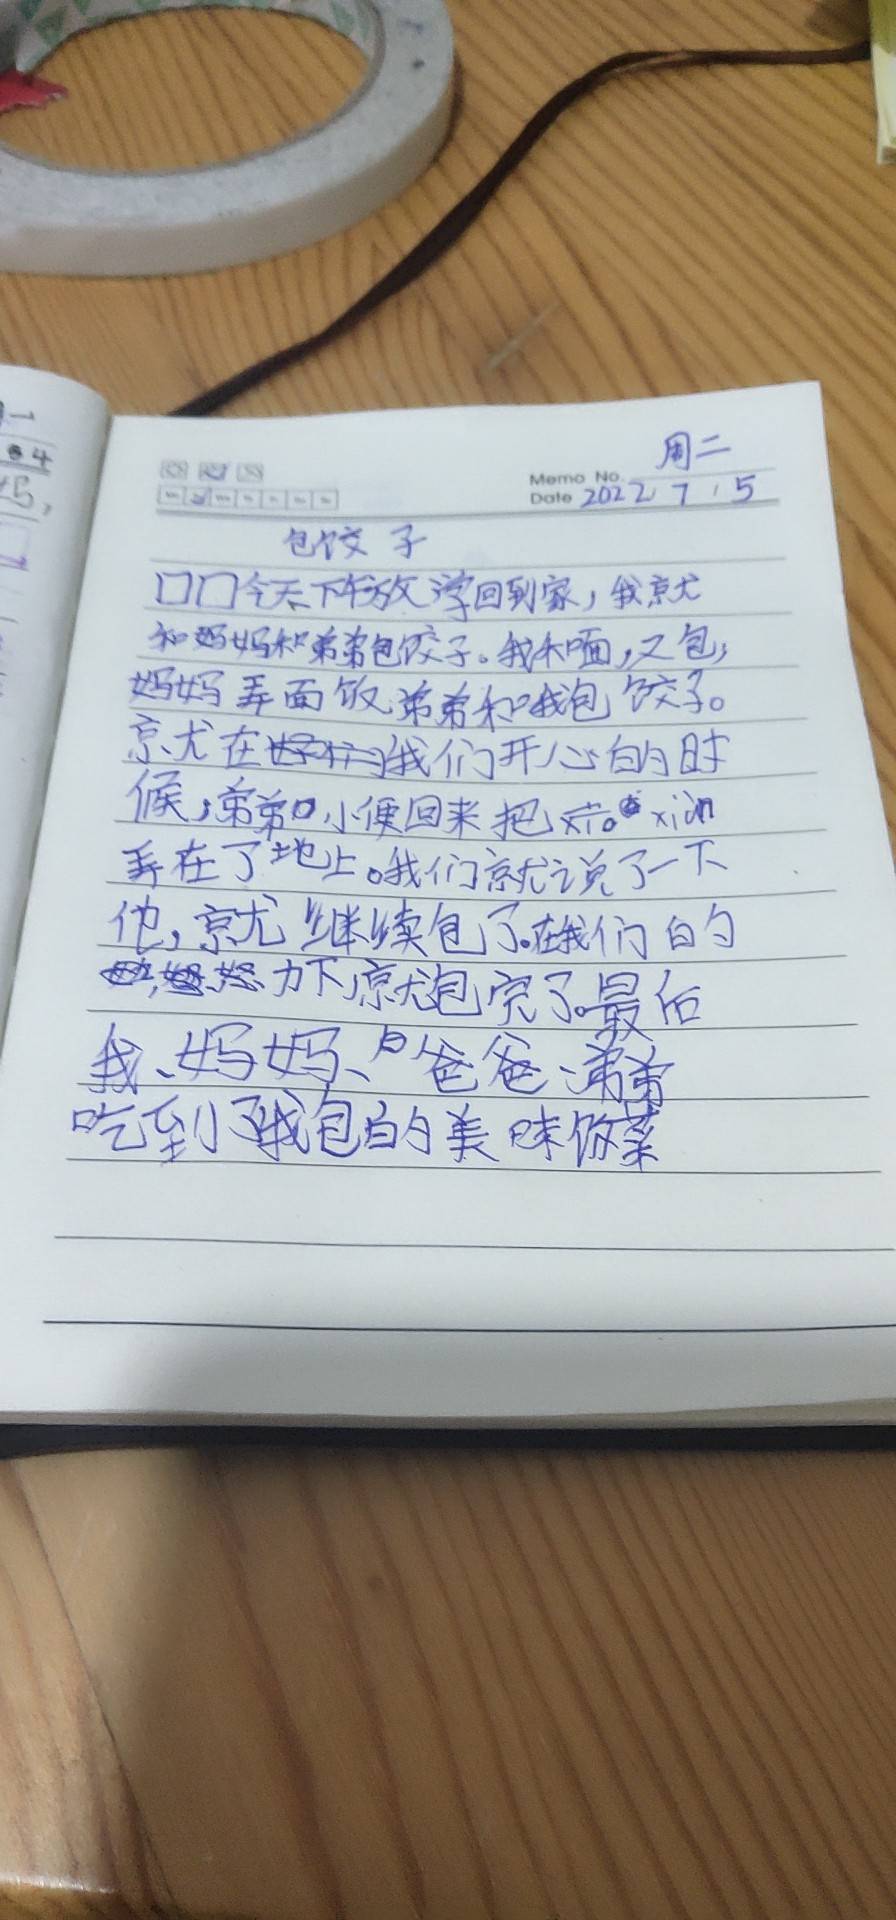 周二
Memo No.
Date 2022 7 5
包饺子
口口今天下午放学回到家，我京尤
和妈妈和弟弟包饺子。我和面，又包，
妈妈弄面饭，弟弟和我包饺子。
京尤在我们开心的时
候，弟弟小便回来把 xian
弄在了地上。我们就说了一下
他，京尤继续包了。在我们的
力下，就包完了。最后
我、妈妈、爸爸、弟弟
吃到了我包的美味
4